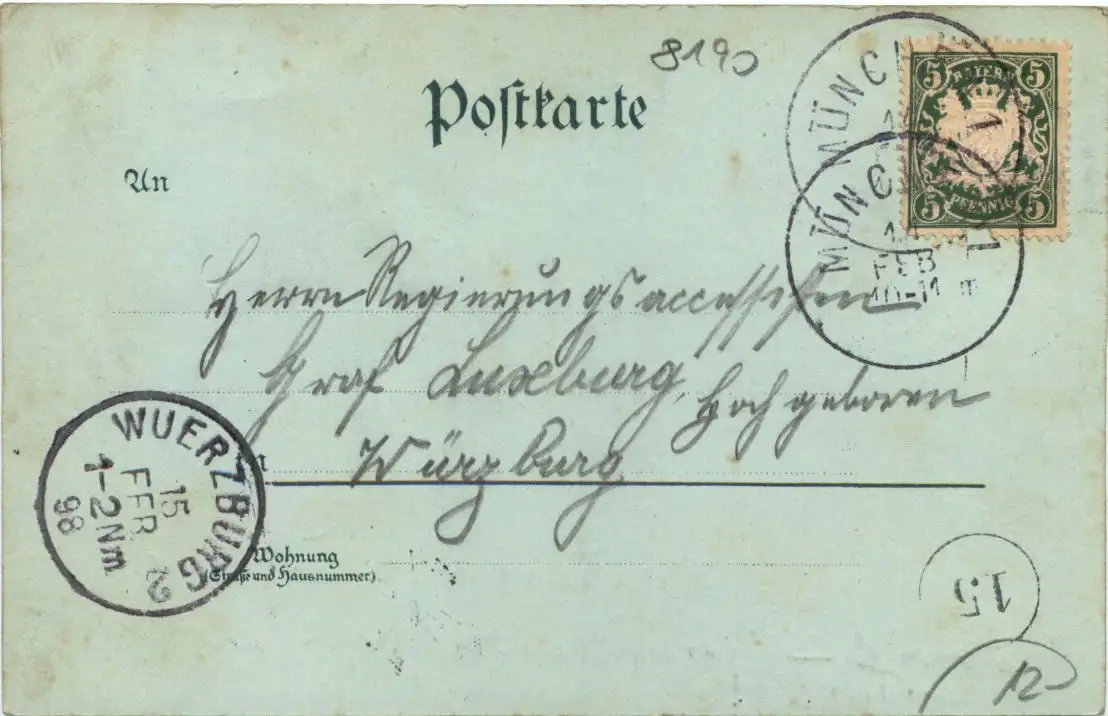 8190
Postkarte
MÜNCHEN 1
5 BAYERN 5
5 PFENNIG 5
MÜNCHEN 1
14
FEB
10-11
An
Herrn Regierungsaccessisten
Graf Luxburg, Hochgeboren
in Würzburg
WUERZBURG 2
15
FEB
1-2 Nm
98
Wohnung
(Straße und Hausnummer)
15
12